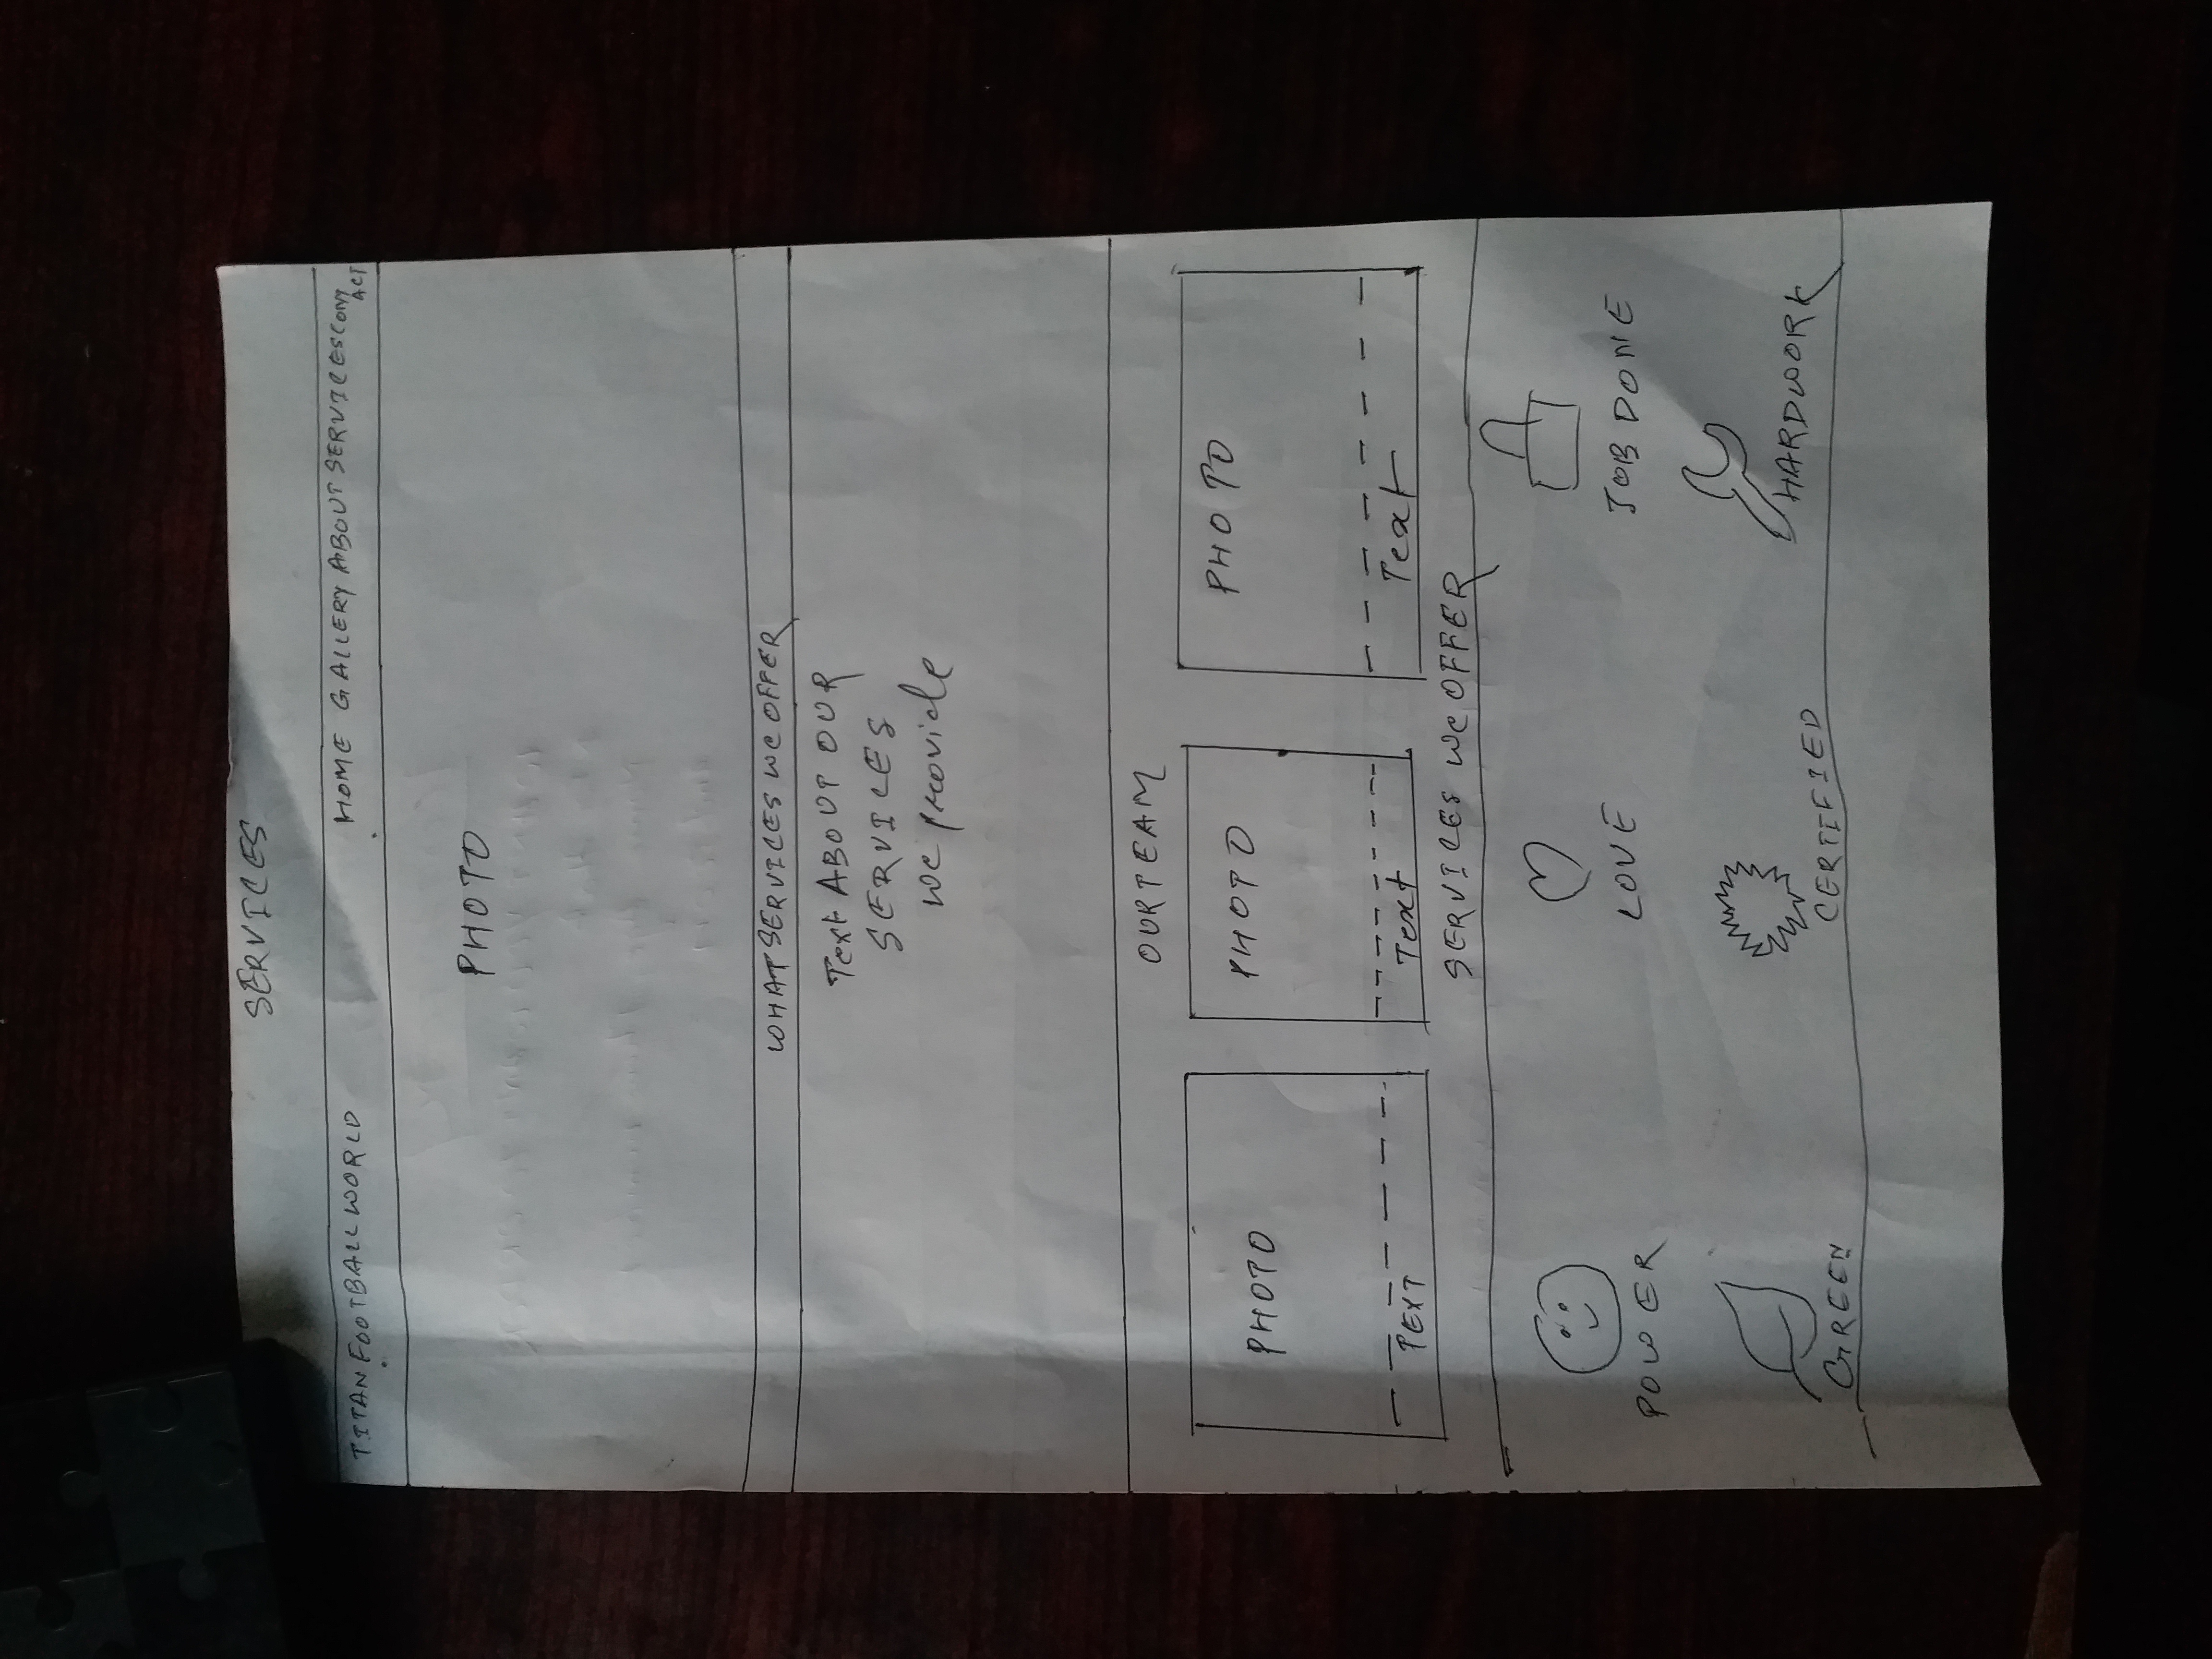 SERVICES
TITAN FOOTBALL WORLD HOME GALLERY ABOUT SERVICES CONTACT
PHOTO
WHAT SERVICES We OFFER
Text ABOUT OUR
SERVICES
we provide
OUR TEAM
PHOTO PHOTO PHOTO
TEXT Text Text
SERVICES We OFFER
POWER LOVE JOB DONE
GREEN CERTIFIED HARDWORK